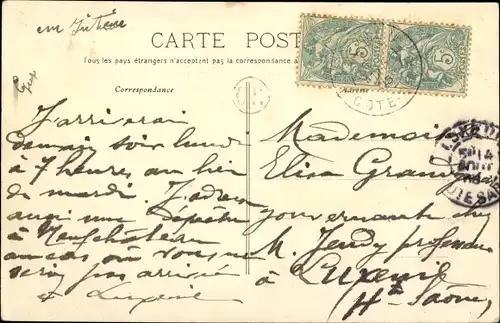 CARTE POST
Tous les pays étrangers n'acceptent pas la correspondance a
Correspondance
Adresse
5
5
J'arriverai
demain soir lundi
à 7 heures au lieu
de mardi. J'adresse
aussi une dépêche
à Neufchâteau
au cas où vous ne
serez pas arrivée
Mademoiselle
Elisa Grand
gouvernante chez
M. Jendy professeur
à Luxeuil
Hte Saône